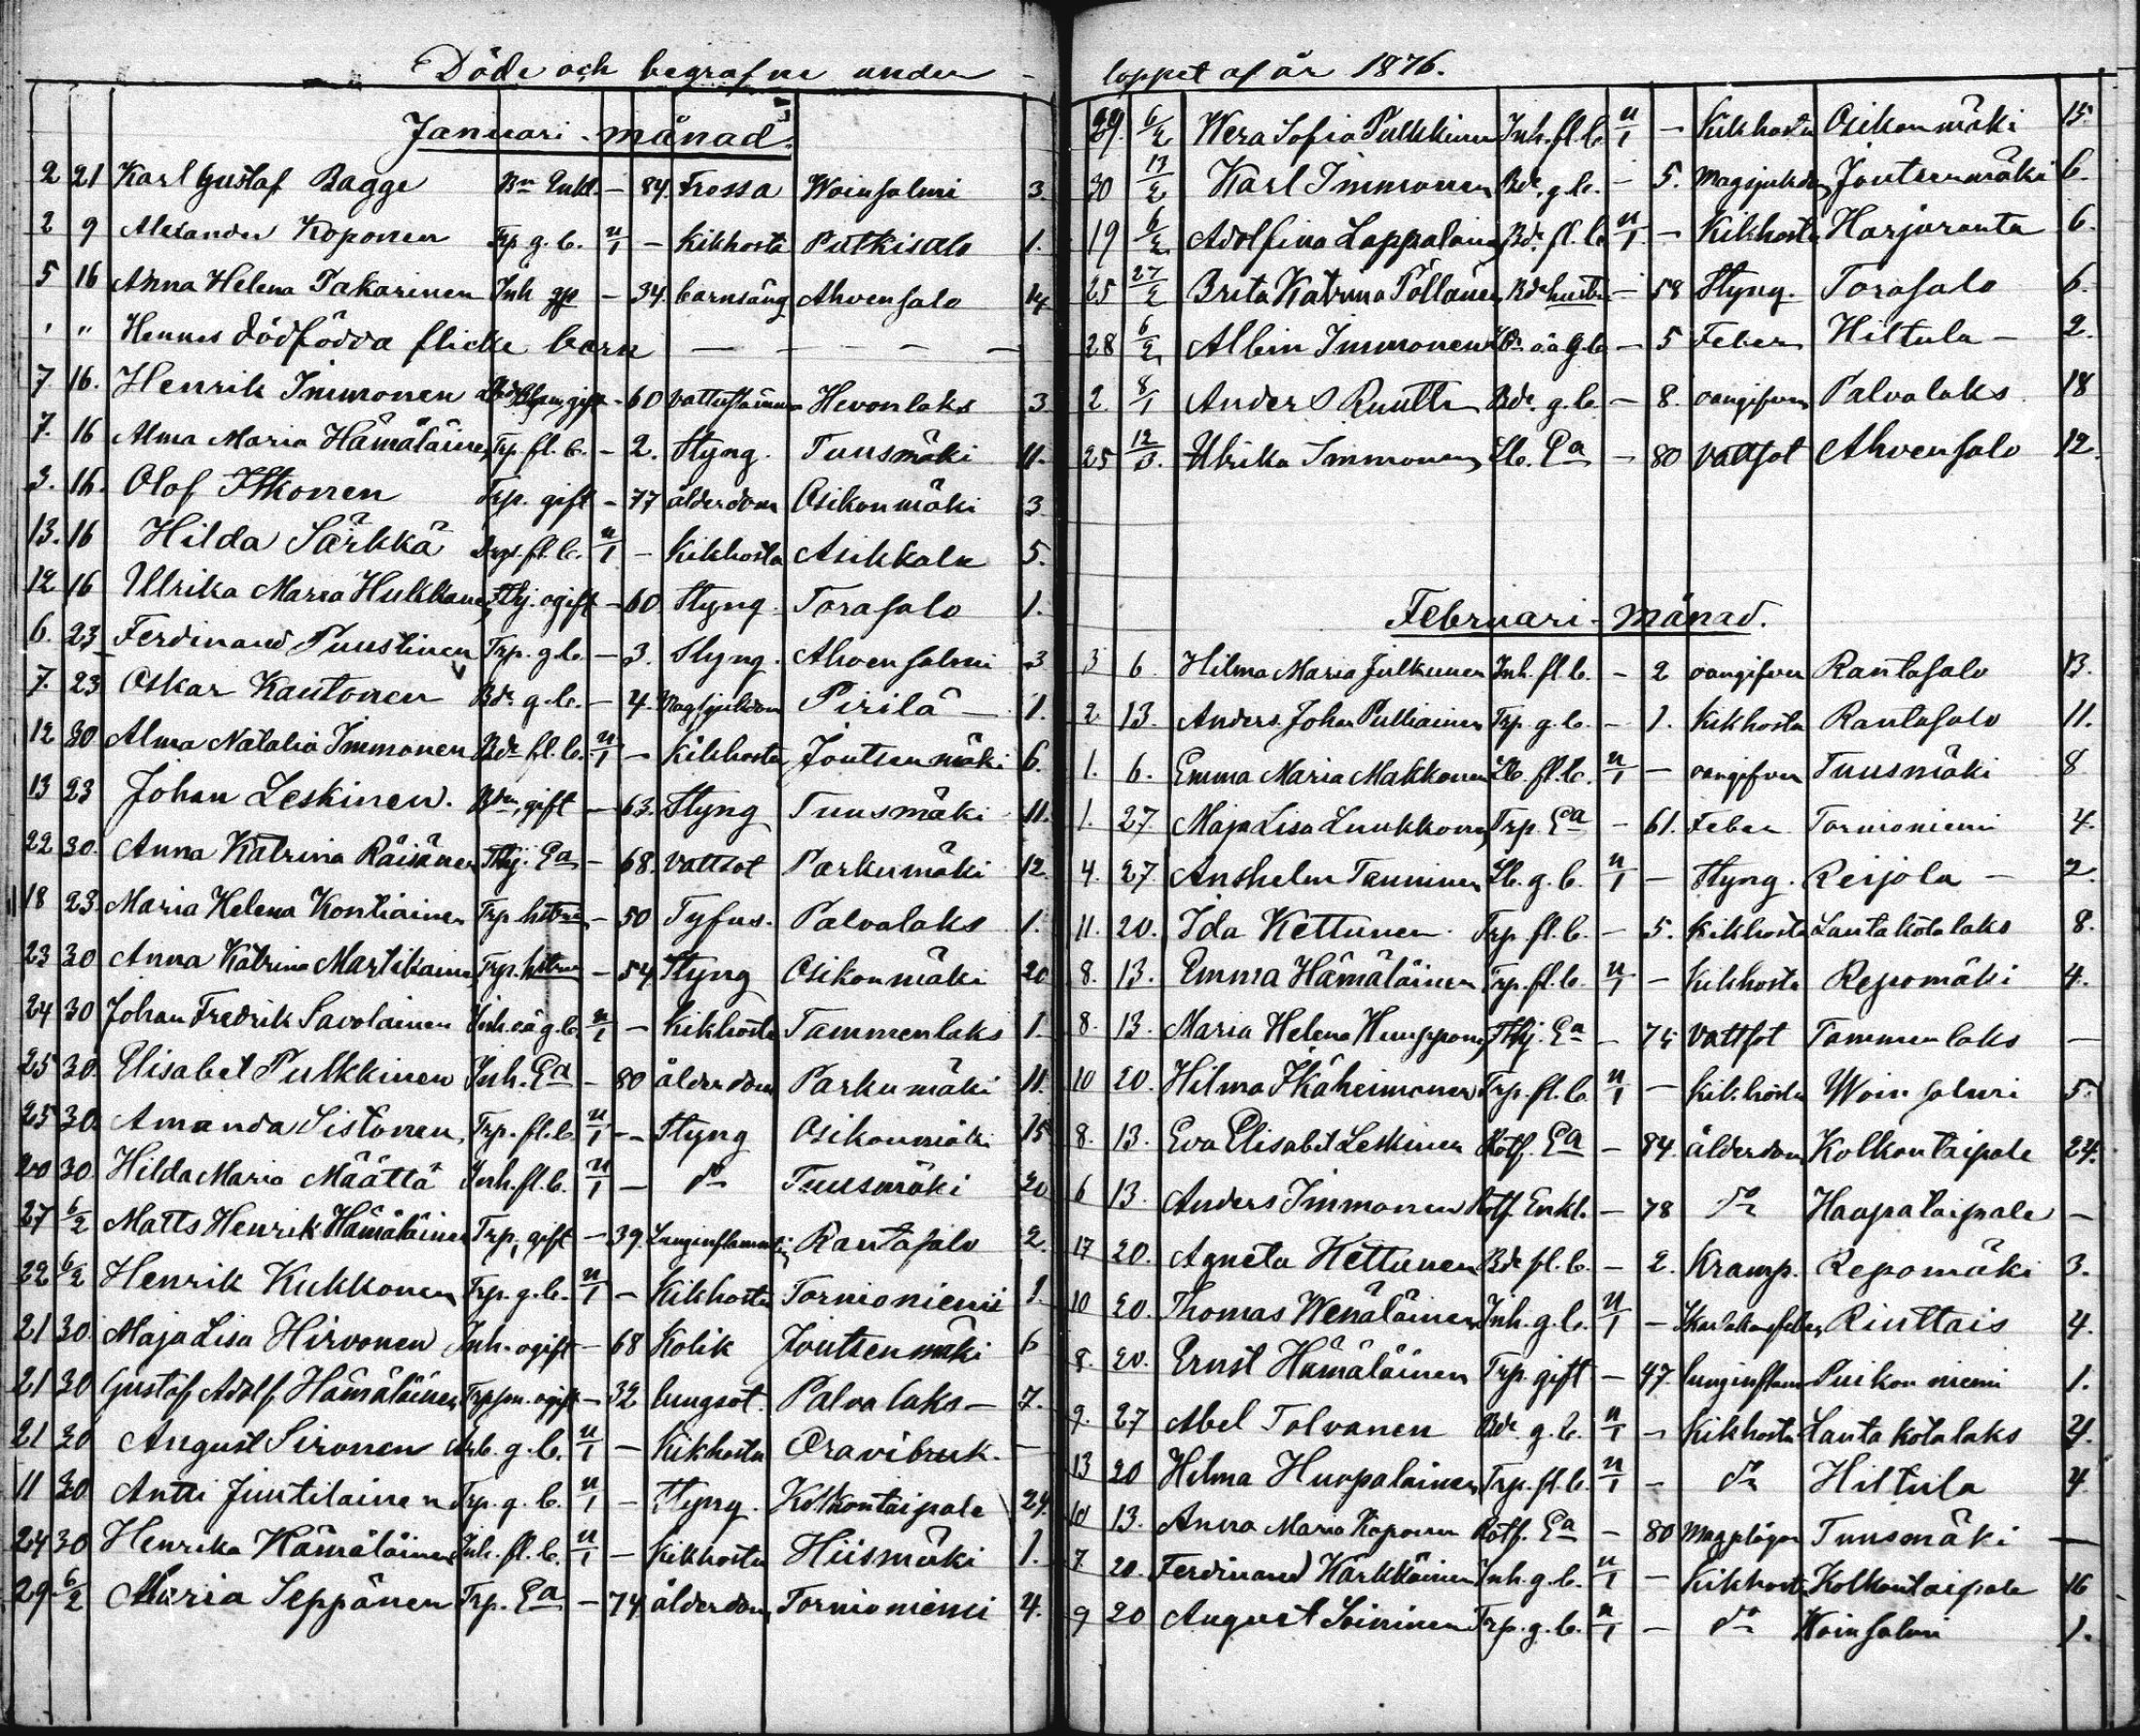 Döde och begrafne under
Januari-månad.
2 21 Karl Gustaf Bagge Bn Enkl. - 84. Frossa Woinsalmi 3.
2 9 Alexander Koponen Trp g. b. u/1 - Kikhosta Putkisalo 1.
5 16 Anna Helena Takarinen Inh - 34. barnsäng Ahvensalo 14
" " Hennes dödfödda flicke barn — — — — —
7 16. Henrik Immonen gift - 60 Hevonlaks 3
7. 16 Alma Maria Hämäläinen Trp. fl. b. - 2. Styng. Tuusmäki 11.
3. 16. Olof Itkonen Trp. gift - 77 ålderdom Osikonmäki 3
13. 16 Hilda Särkkä fl. b. u/1 - Kikhosta Asikkala 5.
12 16 Ullrika Maria Hukkanen Fthj. ogift - 60 Styng. Torasalo 1.
6. 23 Ferdinand Puustinen Trp. g b. - 3. Styng. Ahvensalmi 3
7. 23 Oskar Kautonen Bdr g. b. - 4. Magsjukdom Pirilä — 1.
12 30 Alma Natalia Immonen Bdr fl. b. u/1 - Kikhosta Joutsenmäki 6.
13 23 Johan Leskinen. gift - 63. Styng Tuusmäki 11.
22 30. Anna Katrina Räisänen Fthj. Ea - 68. vattsot Parkumäki 12.
18 23. Maria Helena Kontiainen Trp. hstru - 50 Tyfus. Palvalaks 1.
23 30 Anna Katrina Martikainen Trp. hstru - 54 Styng Osikonmäki 20
24 30 Johan Fredrik Savolainen Inh. oä g. b. u/1 - Kikhosta Tammenlaks 1.
25 30. Elisabet Pulkkinen Inh. Ea - 80 ålderdom Parkumäki 11.
25 30. Amanda Sistonen Trp. fl. b. u/1 - Styng Osikonmäki 15
20 30. Hilda Maria Määttä Inh. fl. b. u/1 - do Tuusmäki 20
27 6/2 Matts Henrik Hämäläinen Trp. gift - 39. Lunginflammation Rantasalo 2.
22 6/2 Henrik Kukkonen Trp. g. b. u/1 - Kikhosta Tornioniemi 1.
21 30. Maja Lisa Hirvonen Inh. ogift - 68 Kolik Joutsenmäki 6
21 30 Gustaf Adolf Hämäläinen Trpson. ogift - 32 lungsot. Palvalaks — 7.
21 30 August Sironen Arb. g. b. u/1 - Kikhosta Oravibruk. —
11 30 Antti Juutilainen Trp. g. b. u/1 - Styng. Kolkontaipale 24.
24 30 Henrika Hämäläinen Inh. fl. b. u/1 - Kikhosta Hiismäki 1.
29 6/2 Maria Seppänen Trp. Ea - 74 ålderdom Tornioniemi 4.
loppet af år 1876.
29. 6/2 Wera Sofia Pulkkinen Inh. fl. b. u/1 - Kikhosta Osikonmäki 15.
30 13/2 Karl Immonen Bdr. g. b. - 5. Magsjukdom Joutsenmäki 6.
19 6/2 Adolfina Lappalainen Bdr. fl. b. u/1 - Kikhosta Harjuranta 6.
25 27/2 Brita Katrina Pöllänen Bdr hustru - 58 Styng. Torasalo 6.
28 6/2 Albin Immonen oä g. b. - 5 Feber Hiltula — 2.
2. 8/1 Anders Ruutti Bdr. g. b. - 8. oangifven Palvalaks 18
25 12/3. Ulrika Immonen Lb. Ea - 80 vattsot Ahvensalo 12.
Februari-månad.
3 6. Hilma Maria Julkunen Inh. fl. b. - 2 oangifven Rantasalo 13.
2 13. Anders Johan Pulliainen Trp. g. b. - 1. Kikhosta Rantasalo 11.
1. 6. Emma Maria Makkonen Lb. fl. b. u/1 - oangifven Tuusmäki 8
1. 27. Maja Lisa Luukkonen Trp. Ea - 61. Feber Tornioniemi 4.
4. 27. Anshelm Tanninen Lb. g. b. u/1 - Styng. Reijola — 2.
11. 20. Ida Kettunen Trp. fl. b. - 5. Kikhosta Lautakotalaks 8.
8. 13. Emma Hämäläinen Trp. fl. b. u/1 - Kikhosta Repomäki 4.
8. 13. Maria Helena Huupponen Fthj. Ea - 74 vattsot Tammenlaks —
10 20. Hilma Ikäheimonen Trp. fl. b. u/1 - Kikhosta Woinsalmi 5.
8. 13. Eva Elisabet Leskinen Rotf. Ea - 84. ålderdom Kolkontaipale 24.
6 13. Anders Immonen Rotf. Enkl. - 78 do Haapataipale —
17 20. Agneta Kettunen Bdr fl. b. - 2. Kramp. Repomäki 3.
10 20. Thomas Wenäläinen Inh. g. b. u/1 - Skarlakansfeber Riuttais 4.
8. 20. Ernst Hämäläinen Trp. gift - 47. lunginflam Puikonniemi 1.
9. 27 Abel Tolvanen Bdr g. b. u/1 - Kikhosta Lautakotalaks 4.
13 20 Hilma Huopalainen Trp. fl. b. u/1 - do Hiltula 4
10 13. Anna Maria Koponen Rotf. Ea - 80 Magplågor Tuusmäki —
7. 20. Ferdinand Kärkkäinen Inh. g. b. u/1 - Kikhosta Kolkontaipale 16
9 20 August Soininen Trp. g. b. u/1 - do Woinsalmi 1.